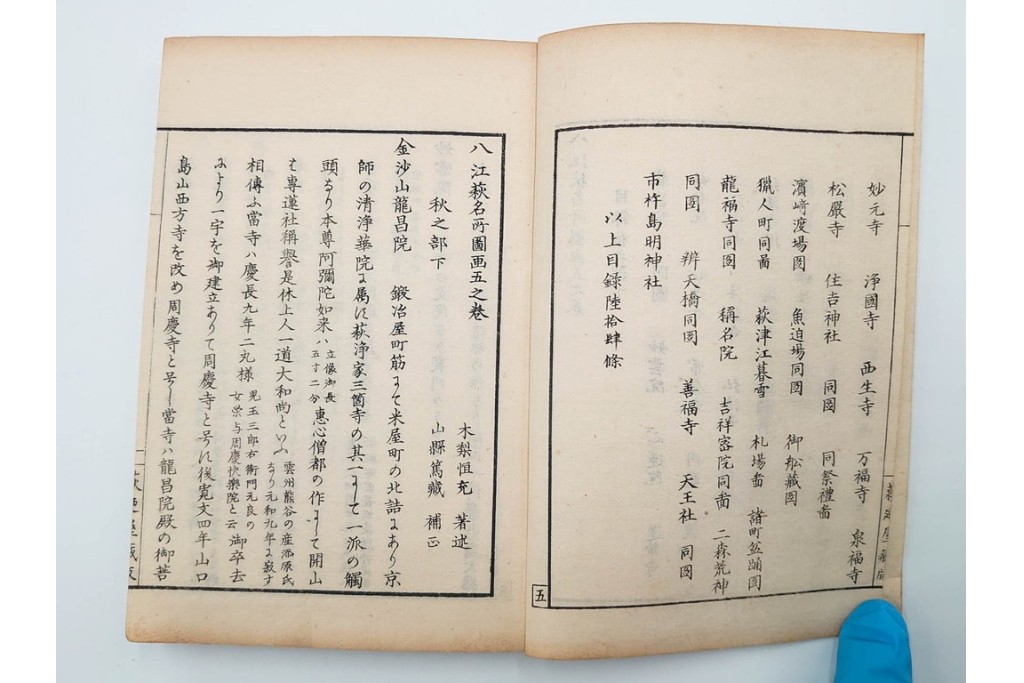 妙元寺　浄國寺　西生寺　万福寺　泉福寺
松嚴寺　住吉神社　同圖　同祭禮啚
濱﨑渡場同圖　魚迫場同圖　御舩藏圖
獵人町同啚　萩津江暮雪　札場啚　諸町盆踊圖
龍福寺同圖　稱名院　吉祥密院同啚　二森荒神
同圖　辨天橋同圖　善福寺　天王社　同圖
市杵島明神社
以上目録陸拾肆條
五
八江萩名所圖画五之巻
秋之部下
木梨恒充　著述
山縣篤藏　補正
金沙山龍昌院　鍛冶屋町筋にて米屋町の北詰にあり京
師の清浄華院に属に萩浄家三箇寺の其一にして一派の觸
頭なり本尊阿彌陀如来ハ立像御長五寸二分惠心僧都の作にして開山
は専蓮社稱譽是休上人一道大和尚といふ雲州熊谷の産源氏なり元和九年に寂す
相傳ふ當寺ハ慶長九年二丸様児玉三郎右衛門元良の女崇与周慶快樂院と云御卒去
により一宇を御建立ありて周慶寺と号に後寛文四年山口
島山西方寺を改め周慶寺と号し當寺ハ龍昌院殿の御菩